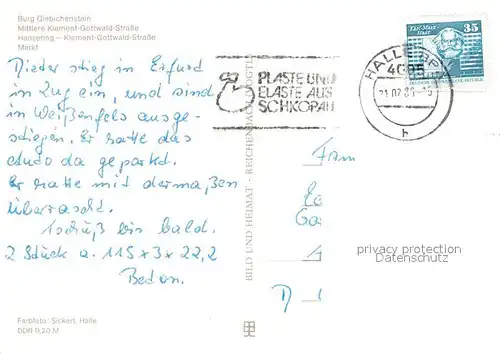 Burg Giebichenstein
Mittlere Klement-Gottwald-Straße
Hansering – Klement-Gottwald-Straße
Markt
Dieter stieg in Erfurd
in Zug ein, und sind
in Weißenfels ausge-
stiegen. Er hatte das
Auto da geparkt.
Er hatte mit dermaßen
überrascht.
Tschüß bis bald.
2 Stück a. 115x3x22,2
Beton.
Farbfoto: Sickert, Halle
DDR 0,20 M
BILD UND HEIMAT · REICHENBACH (VOGTL)
PLASTE UND
ELASTE AUS
SCHKOPAU
HALLE
4095
21.02.
h
Karl-Marx-
Stadt
35
Fam
D
privacy protection
Datenschutz